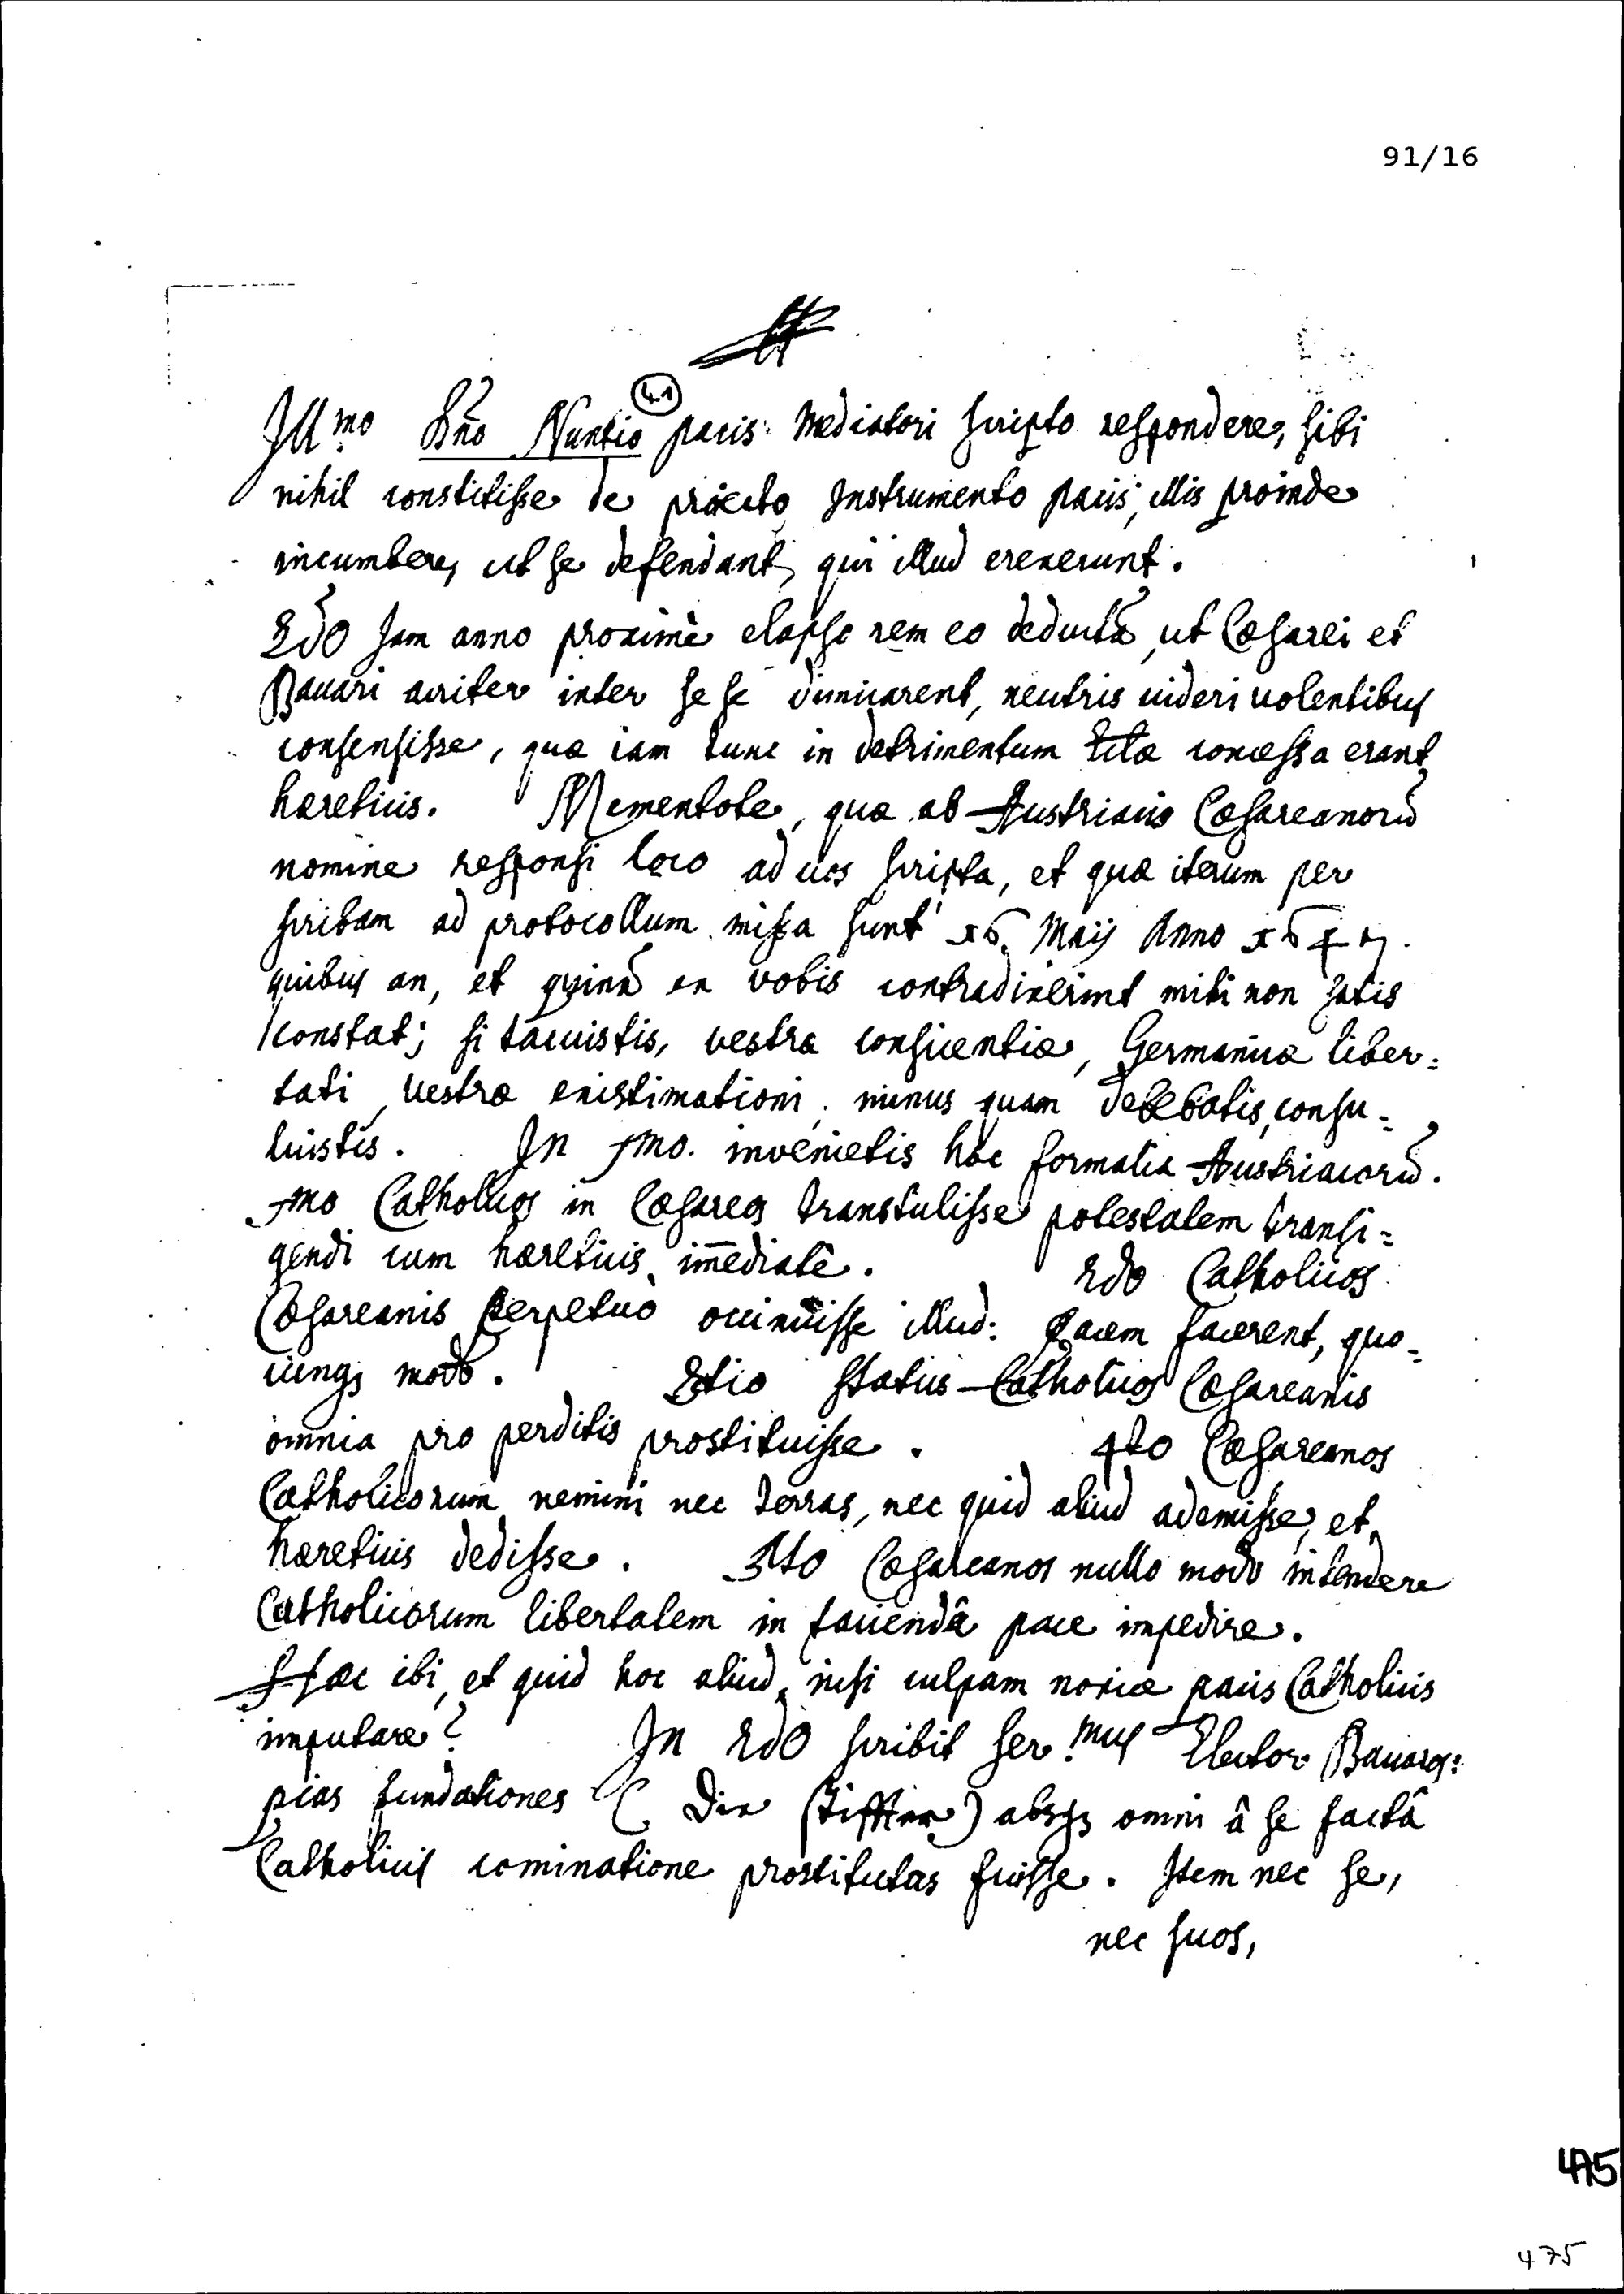 91/16
41
Ill.mo Dño Nuntio pacis Mediatori scripto respondere, sibi
nihil constitisse de Instrumento pacis, illis proinde
incumbere, ut se defendant, qui illud erexerunt.
2do Jam anno proximè elapso rem eo deductã, ut Cæsarei et
Bavari acriter inter se se dimicarent, neutris uideri uolentibus
consensisse, quæ iam tunc in detrimentum concessa erant
hæreticis. Mementote, quæ ab Austriacis Cæsareanorũ
nomine responsi loco ad uos scripta, et quæ iterum per
scribam ad protocollum missa sunt 16. Maij Anno 1647.
quibus an, et quinã ex vobis contradixerint mihi non satis
constat; si tacuistis, vestræ conscientiæ, Germanicæ liber=
tati, vestræ existimationi, minus quam debebatis, consu=
luistis. In 1mo. invenietis hæc formalia Austriacorũ.
1mo Catholicos in Cæsareos transtulisse potestatem transi=
gendi cum hæreticis im̃ediatè. 2do Catholicos
Cæsareanis perpetuò occinuisse illud: Pacem facerent, quo=
cunqȝ modo. 3tio Status Catholicos Cæsareanis
omnia pro perditis prostituisse. 4to Cæsareanos
Catholicorum nemini nec terras, nec quid aliud ademisse, et
hæreticis dedisse. 5to Cæsareanos nullo modo intendere
Catholicorum libertatem in faciendâ pace impedire.
Hæc ibi, et quid hoc aliud, nisi culpam noxiæ pacis Catholicis
imputare? In 2do scribit Ser.mus Elector Bavarꝰ:
pias fundationes (Die Stiffter) absqȝ omni â se factâ
Catholicis cominatione prostitutas fuisse. Item nec se,
nec suos,
475
475